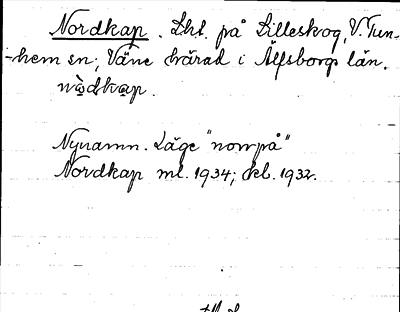 Nordkap. Lht. på Lilleskog, V. Tun-
-hem sn; Väne härad i Älfsborgs län.

Nynamn. Läge "norrpå"
Nordkap ml. 1934; ekl. 1932.